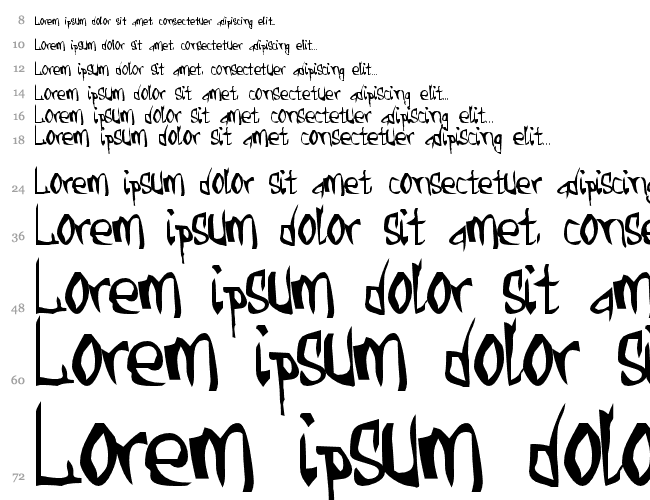 8 Lorem ipsum dolor sit amet consectetuer adipiscing elit...
10 Lorem ipsum dolor sit amet consectetuer adipiscing elit...
12 Lorem ipsum dolor sit amet, consectetuer adipiscing elit...
14 Lorem ipsum dolor sit amet consectetuer adipiscing elit...
16 Lorem ipsum dolor sit amet consectetuer adipiscing elit...
18 Lorem ipsum dolor sit amet consectetuer adipiscing elit...
24 Lorem ipsum dolor sit amet consectetuer adipiscing
36 Lorem ipsum dolor sit amet, conse
48 Lorem ipsum dolor sit am
60 Lorem ipsum dolor si
72 Lorem ipsum dolo